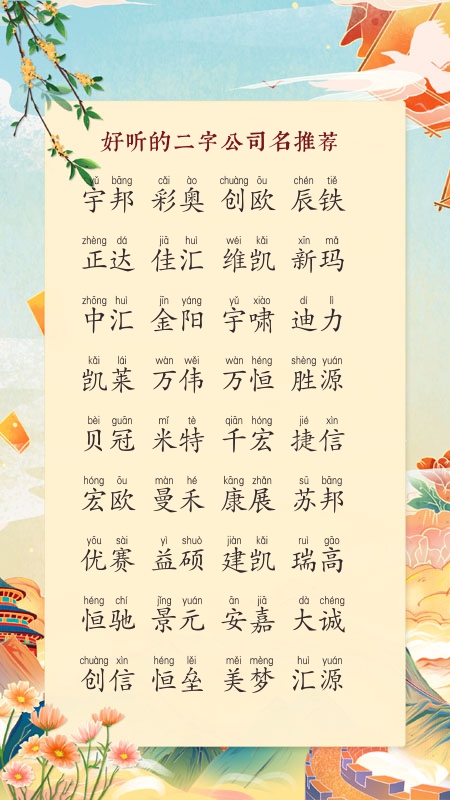 好听的二字公司名推荐
yǔ bāng cǎi ào chuàng ōu chén tiě
宇邦 彩奥 创欧 辰铁
zhèng dá jiā huì wéi kǎi xīn mǎ
正达 佳汇 维凯 新玛
zhōng huì jīn yáng yǔ xiào dí lì
中汇 金阳 宇啸 迪力
kǎi lái wàn wěi wàn héng shèng yuán
凯莱 万伟 万恒 胜源
bèi guān mǐ tè qiān hóng jié xìn
贝冠 米特 千宏 捷信
hóng ōu màn hé kāng zhǎn sū bāng
宏欧 曼禾 康展 苏邦
yōu sài yì shuò jiàn kǎi ruì gāo
优赛 益硕 建凯 瑞高
héng chí jǐng yuán ān jiā dà chéng
恒驰 景元 安嘉 大诚
chuàng xìn héng lěi měi mèng huì yuán
创信 恒垒 美梦 汇源